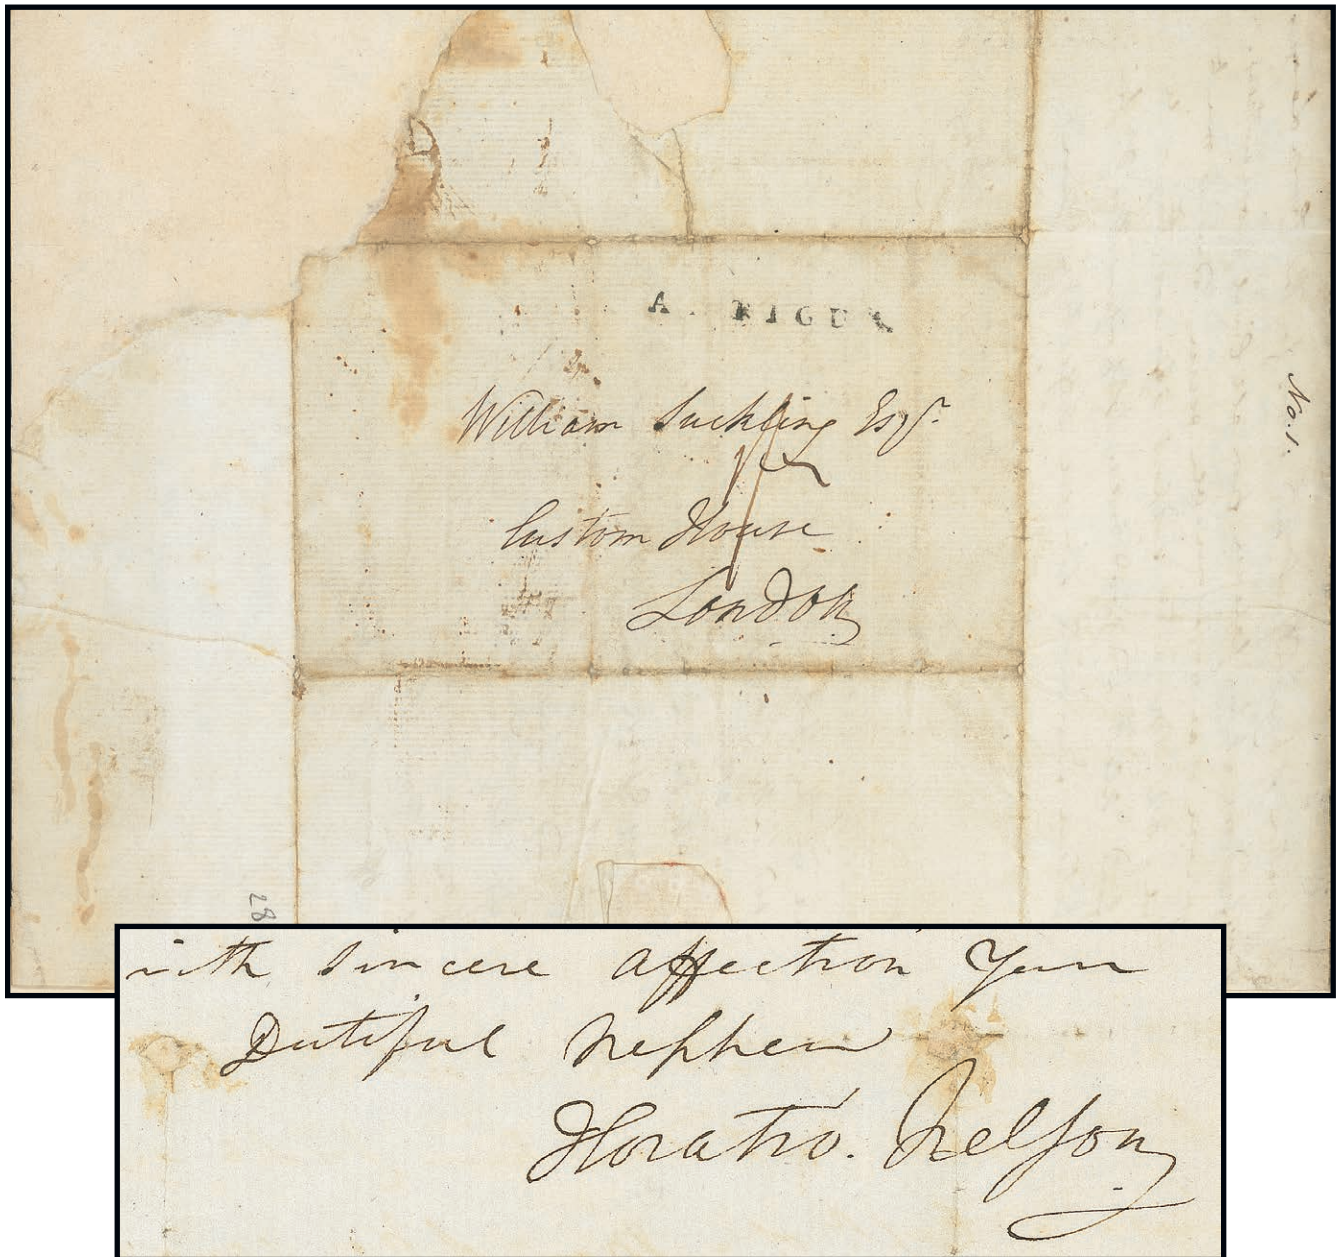 A . TIGUA
William Suckling Esqr.
Custom House
London
No. 1.
28
with sincere affection Your
Dutiful Nephew
Horatio. Nelson